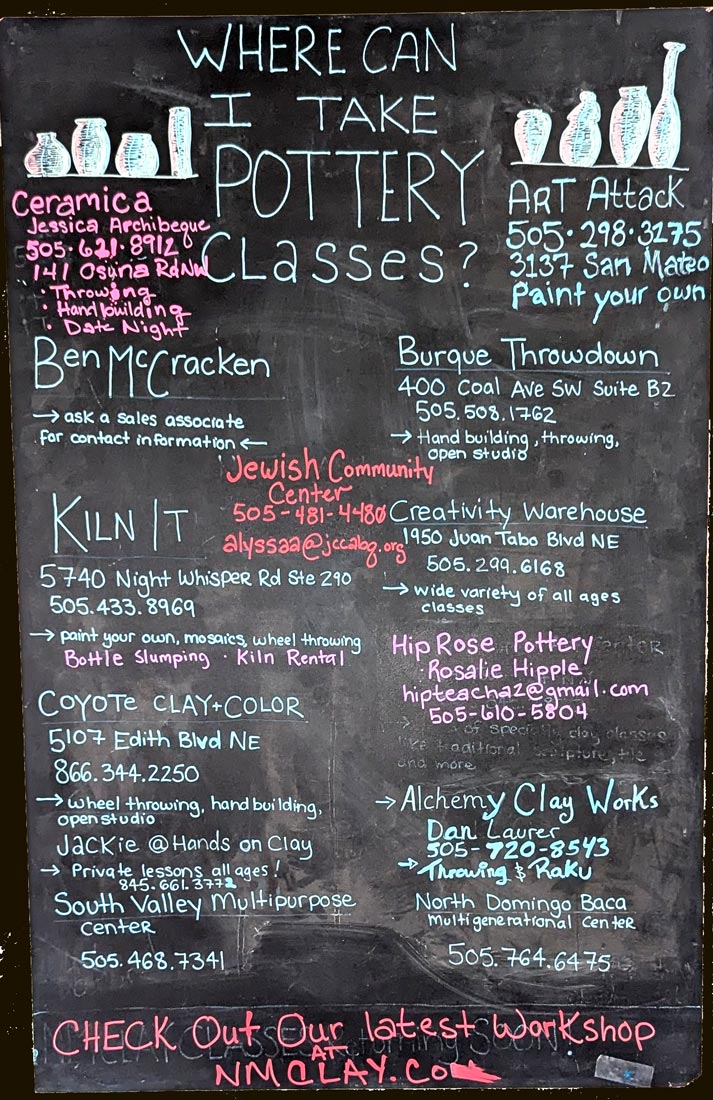 WHERE CAN
I TAKE
POTTERY
CLasses?
Ceramica
Jessica Archibeque
505·621·8912
141 Osuna Rd NW
· Throwing
· Handbuilding
· Date Night
ART Attack
505·298·3275
3137 San Mateo
Paint your own
Ben McCracken
→ ask a sales associate
for contact information ←
Burque Throwdown
400 Coal Ave SW Suite B2
505.508.1762
→ Hand building, throwing,
open studio
Jewish Community
Center
505-481-4480
alyssaa@jccabq.org
KILN IT
5740 Night Whisper Rd Ste 290
505.433.8969
→ paint your own, mosaics, wheel throwing
Bottle Slumping · Kiln Rental
Creativity Warehouse
1950 Juan Tabo Blvd NE
505.299.6168
→ wide variety of all ages
classes
Hip Rose Pottery
Rosalie Hipple
hipteacha2@gmail.com
505-610-5804
of specialty clay classes
like traditional sculpture, tile
and more
COYOTE CLAY+COLOR
5107 Edith Blvd NE
866.344.2250
→ wheel throwing, hand building,
open studio
Jackie @ Hands on Clay
→ Private lessons all ages!
845.661.3772
South Valley Multipurpose
Center
505.468.7341
→ Alchemy Clay Works
Dan Laurer
505-720-8543
→ Throwing & Raku
North Domingo Baca
Multigenerational Center
505.764.6475
CHECK Out Our latest Workshop
AT
NMCLAY.Co